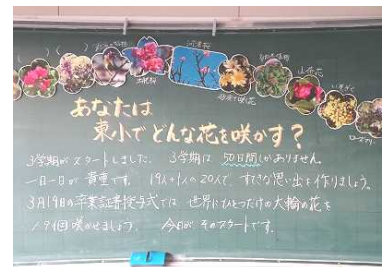 河津桜
山茶花
ローズマリー
あなたは
東小でどんな花を咲かす？
3学期がスタートしました。 3学期は 50日間しかありません。
一日一日が貴重です。 19人+1人の20人で すてきな思い出を作りましょう。
3月19日の卒業証書授与式では 世界にひとつだけの大輪の花を
19個咲かせましょう。 今日がそのスタートです。